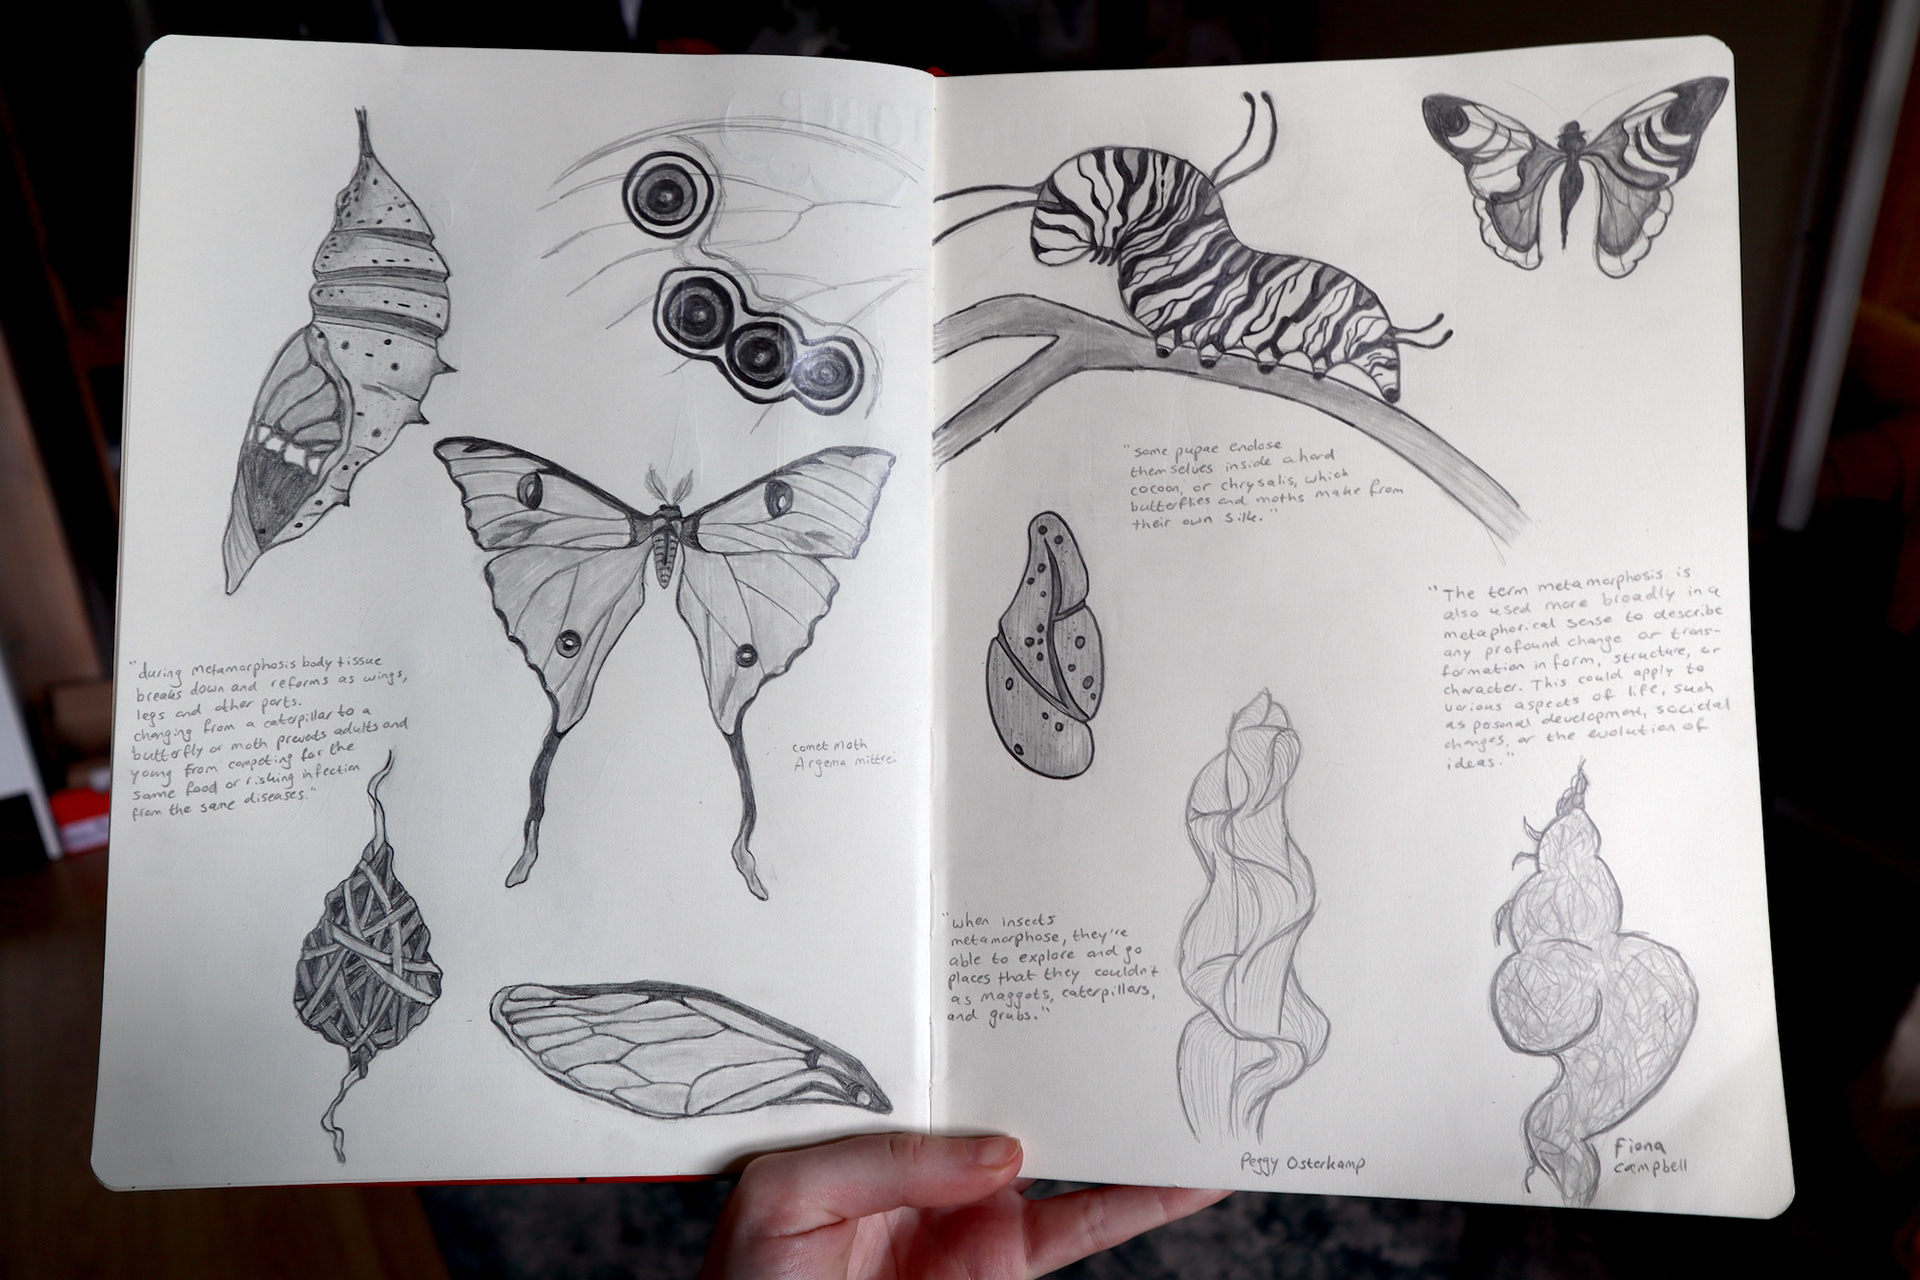 "during metamorphosis body tissue
breaks down and reforms as wings,
legs and other parts.
changing from a caterpillar to a
butterfly or moth prevents adults and
young from competing for the
same food or risking infection
from the same diseases."
comet moth
Argema mittrei
"some pupae enclose
themselves inside a hard
cocoon, or chrysalis, which
butterflies and moths make from
their own silk."
"The term metamorphosis is
also used more broadly in a
metaphorical sense to describe
any profound change or trans-
formation in form, structure, or
character. This could apply to
various aspects of life, such
as personal development, societal
changes, or the evolution of
ideas."
"when insects
metamorphose, they're
able to explore and go
places that they couldn't
as maggots, caterpillars,
and grubs."
Peggy Osterkamp
Fiona
Campbell